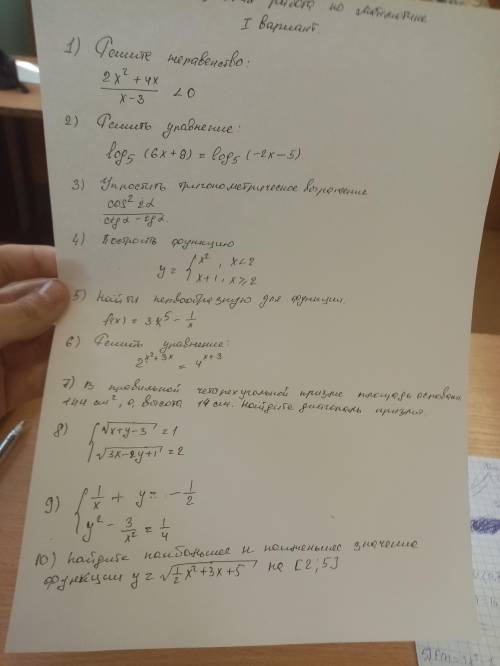 работа по математике
I вариант.
1) Решите неравенство:
2x² + 4x / x - 3 < 0
2) Решить уравнение:
log₅ (6x + 9) = log₅ (-2x - 5)
3) Упростить тригонометрическое выражение
cos² 2α / ctgα - tgα.
4) Построить функцию
y = { x², x < 2
x + 1, x ⩾ 2
5) Найти первообразную для функции.
f(x) = 3x⁵ - 1/x
6) Решить уравнение:
2^(x² + 3x) = 4^(x + 3)
7) В правильной четырехугольной призме площадь основания
144 см², а высота 14 см. Найдите диагональ призмы.
8) { √(x + y - 3) = 1
√(3x - 2y + 1) = 2
9) { 1/x + y = - 1/2
y² - 3/x² = 1/4
10) Найдите наибольшее и наименьшее значение
функции y = √(1/2 x² + 3x + 5) на [2; 5]